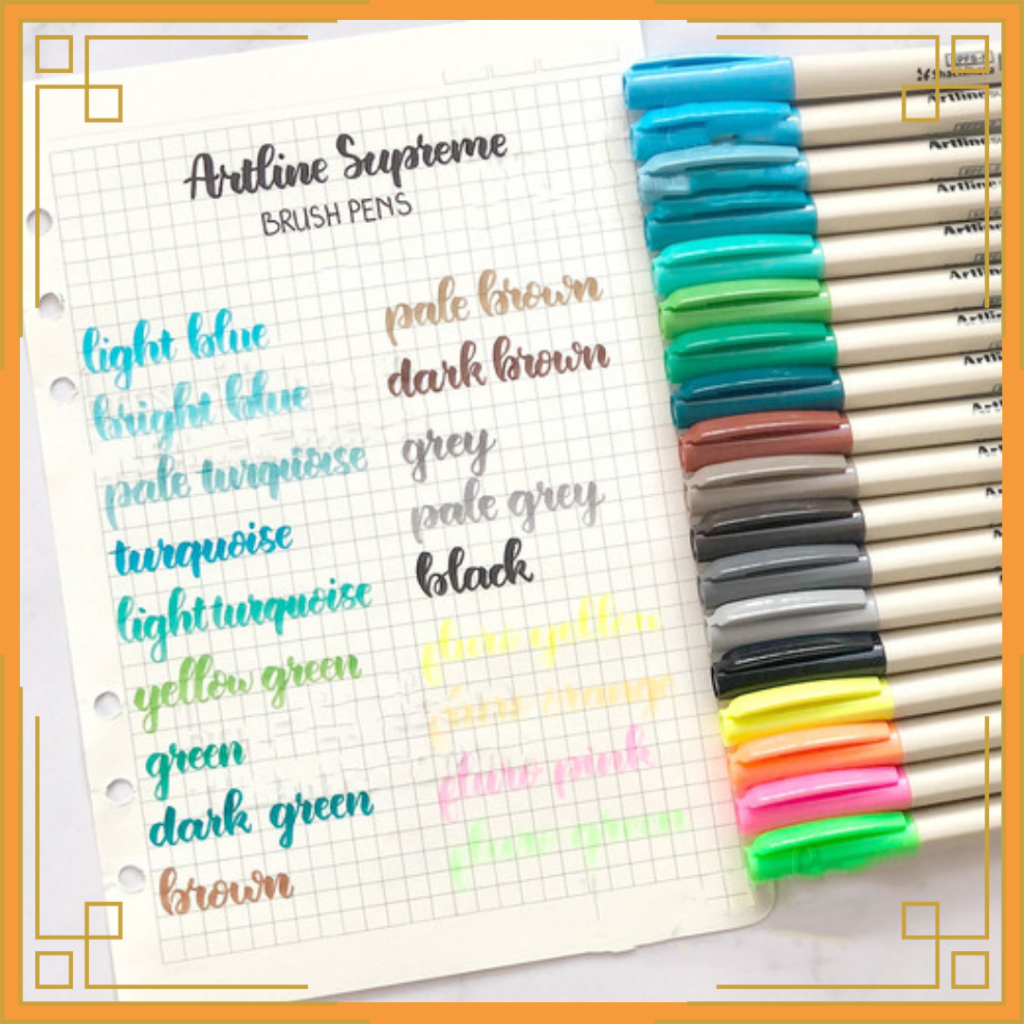 Artline Supreme
BRUSH PENS
light blue
bright blue
pale turquoise
turquoise
light turquoise
yellow green
green
dark green
brown
pale brown
dark brown
grey
pale grey
black
fluro yellow
fluro orange
fluro pink
fluro green
Shachihata
Artline
Artline
Artline
Artline
Artline
Artline